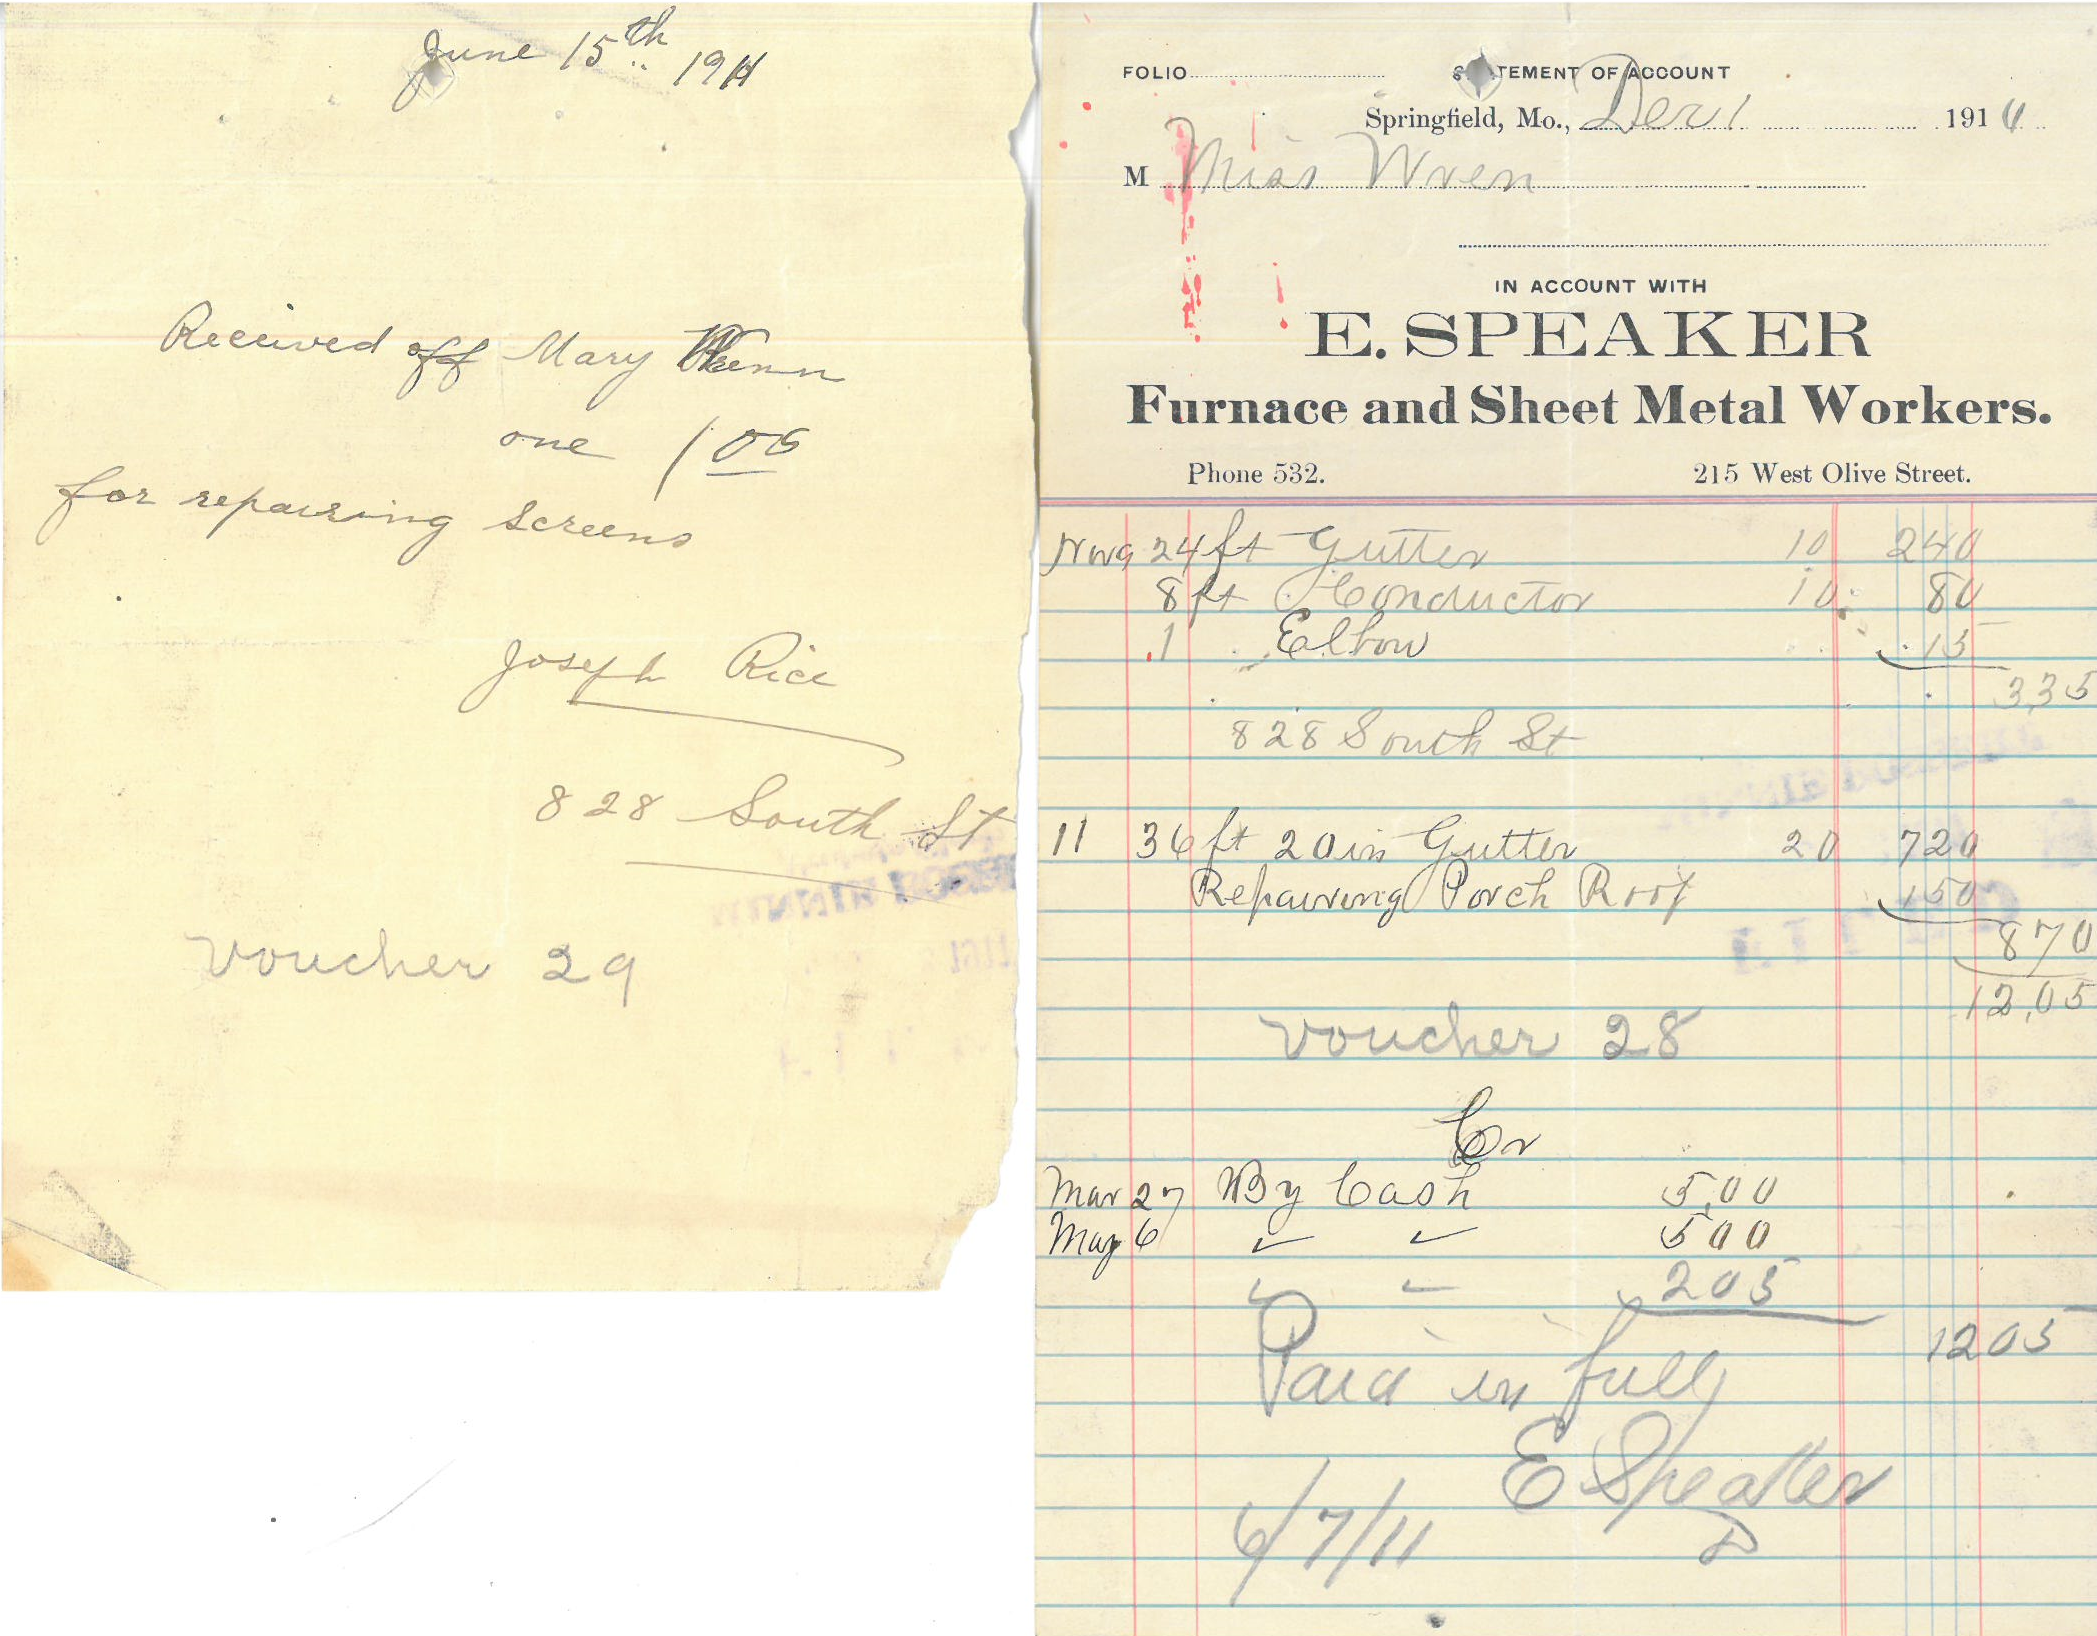 June 15th 1911
Received off Mary Wrenn
one 1 00
for repairing screens
Joseph Rice
828 South St
Voucher 29
FOLIO
STATEMENT OF ACCOUNT
Springfield, Mo., Dec 1 1910
M Miss Wren
IN ACCOUNT WITH
E. SPEAKER
Furnace and Sheet Metal Workers.
Phone 532. 215 West Olive Street.
Nov 9 24 ft Gutter 10 240
8 ft Conductor 10 80
1 Elbow 15
3 35
828 South St
11 36 ft 20 in Gutter 20 720
Repairing Porch Roof 150
870
12,05
Voucher 28
Cr
Mar 27 By Cash 5,00
May 6 " " 500
" " 205
1205
Paid in full
E Speaker
6/7/11